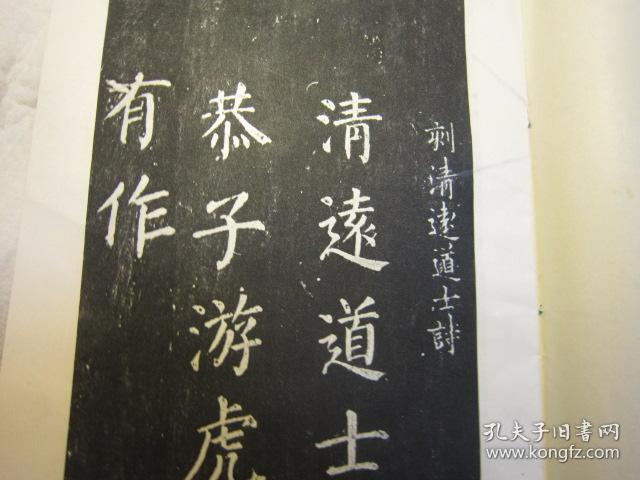 刻清遠道士詩
清遠道士
恭子游虎
有作
孔夫子旧书网